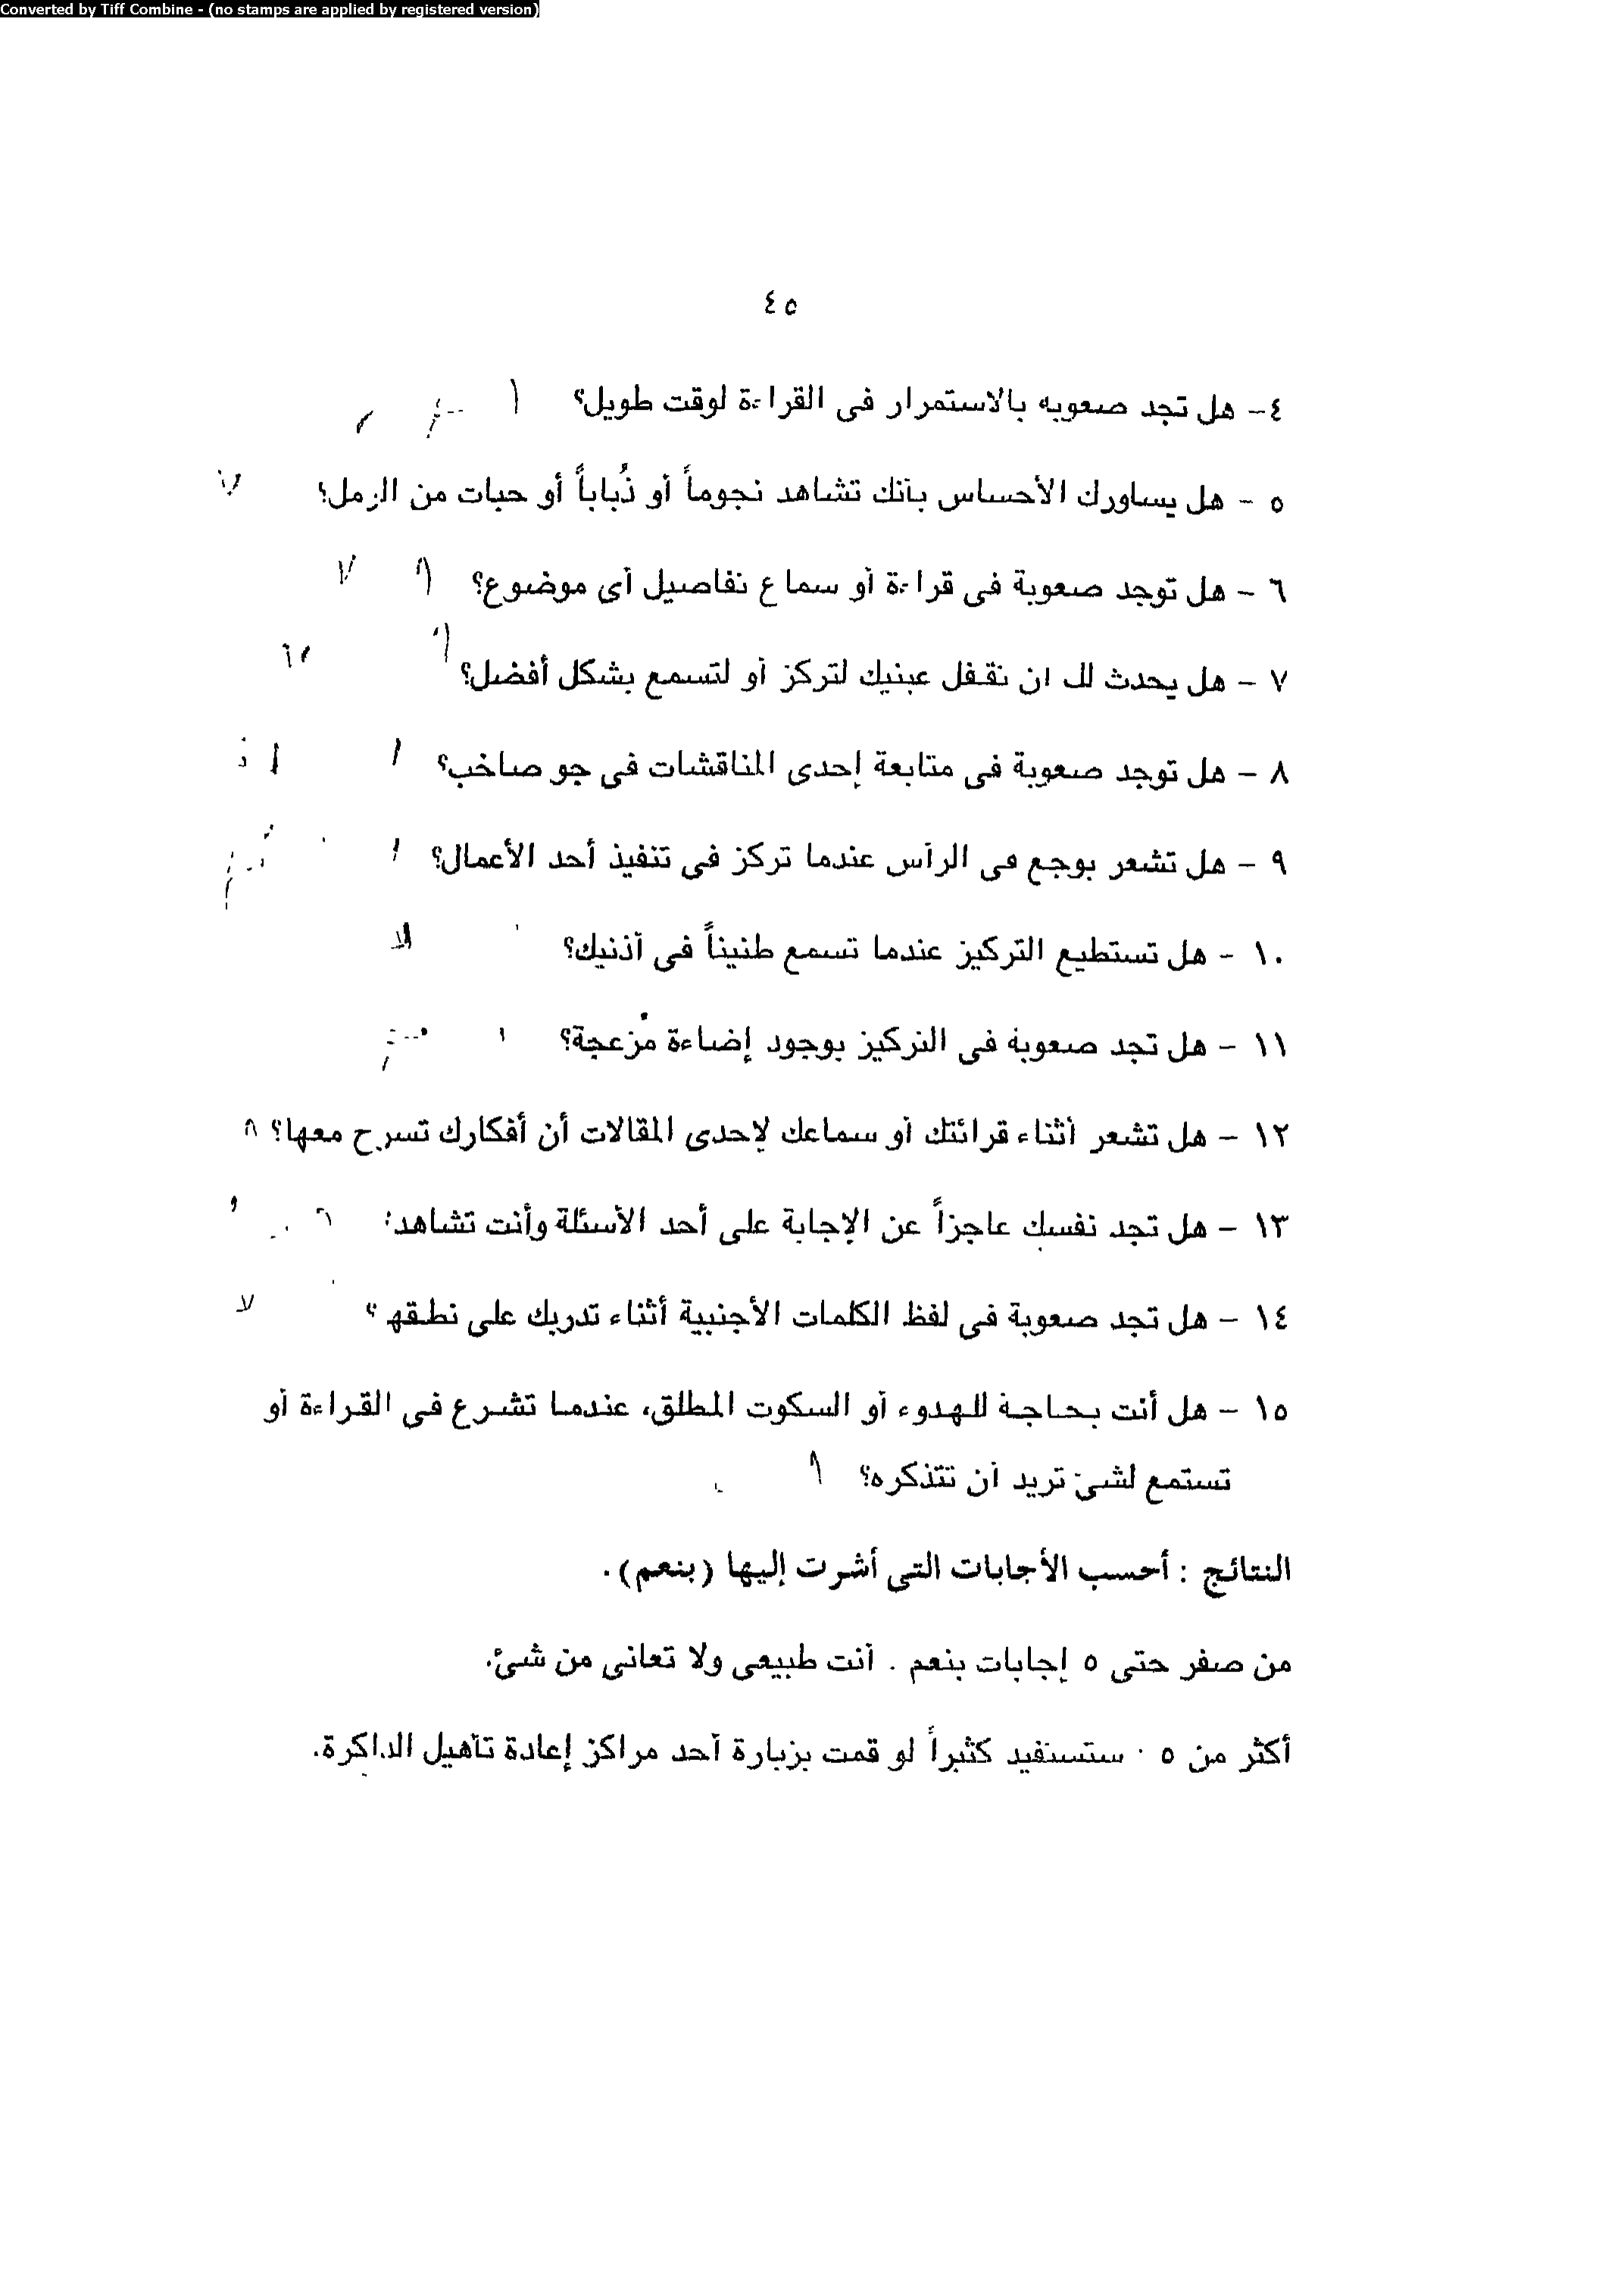 Converted by Tiff Combine - (no stamps are applied by registered version)
٤٥
٤- هل تجد صعوبه بالاستمرار فى القراءة لوقت طويل؟
٥ - هل يساورك الأحساس بأنك تشاهد نجوماً أو ذُباباً أو حبات من الرمل؟
٦ - هل توجد صعوبة فى قراءة أو سماع تفاصيل أى موضوع؟
٧ - هل يحدث لك ان تقفل عينيك لتركز أو لتسمع بشكل أفضل؟
٨ - هل توجد صعوبة فى متابعة إحدى المناقشات فى جو صاخب؟
٩ - هل تشعر بوجع فى الرأس عندما تركز فى تنفيذ أحد الأعمال؟
١٠ - هل تستطيع التركيز عندما تسمع طنيناً فى أذنيك؟ لا
١١ - هل تجد صعوبة فى التركيز بوجود إضاءة مزعجة؟
١٢ - هل تشعر أثناء قرائتك أو سماعك لإحدى المقالات أن أفكارك تسرح معها؟
١٣ - هل تجد نفسك عاجزاً عن الإجابة على أحد الأسئلة وأنت تشاهد
١٤ - هل تجد صعوبة فى لفظ الكلمات الأجنبية أثناء تدربك على نطقها؟ لا
١٥ - هل أنت بحاجة للهدوء أو السكوت المطلق، عندما تشرع فى القراءة أو
تستمع لشئ تريد أن تتذكره؟
النتائج : أحسب الأجابات التى أشرت إليها (بنعم).
من صفر حتى ٥ إجابات بنعم . أنت طبيعى ولا تعانى من شئ.
أكثر من ٥ . ستستفيد كثيراً لو قمت بزيارة أحد مراكز إعادة تأهيل الذاكرة.